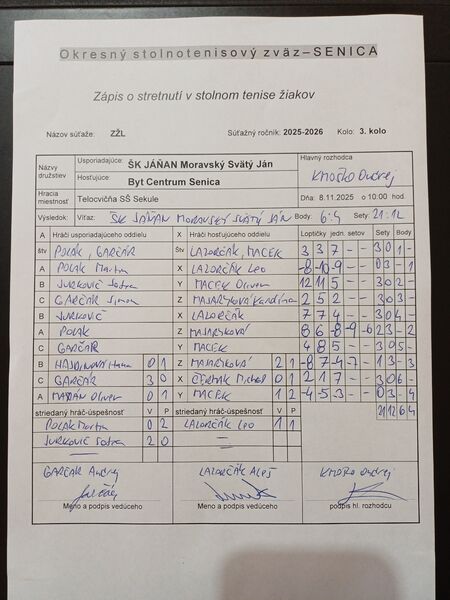 Okresný stolnotenisový zväz–SENICA
Zápis o stretnutí v stolnom tenise žiakov
Názov súťaže: ZŽL Súťažný ročník: 2025-2026 Kolo: 3. kolo
Názvy družstiev Usporiadajúce: ŠK JÁŇAN Moravský Svätý Ján Hlavný rozhodca
Hosťujúce: Byt Centrum Senica KMOŠKO Ondrej
Hracia miestnosť Telocvičňa SŠ Sekule Dňa: 8.11.2025 o 10:00 hod.
Výsledok: Víťaz: ŠK JÁŇAN MORAVSKÝ SVÄTÝ JÁN Body: 6:4 Sety 21:12
A Hráči usporiadajúceho oddielu X Hráči hosťujúceho oddielu Loptičky jedn. setov Sety Body
štv POLÁK, GARČÁR Štv LALORČÁK, MACEK 3 3 7 - - 3 0 1 -
A POLÁK Martin X LALORČÁK Leo -8 -10 -9 - - 0 3 - 1
B JURKOVIČ Y MACEK Oliver 12 11 5 - - 3 0 2 -
C GARČÁR Simon Z MAJARYKOVÁ Karolína 2 5 2 - - 3 0 3 -
B JURKOVIČ X LALORČÁK 7 7 4 - - 3 0 4 -
A POLÁK Z MAJARYKOVÁ 8 6 -8 -9 -6 2 3 - 2
C GARČÁR Y MACEK 4 8 5 - - 3 0 5 -
B HAJDINOVÁ Hana 0 1 Z MAJARYKOVÁ 2 1 -8 7 -4 -7 - 1 3 - 3
C GARČÁR 3 0 X ČERMÁK Michal 0 1 2 1 7 - - 3 0 6 -
A Oliver 0 1 Y MACEK 1 2 -4 -5 -3 - - 0 3 - 4
striedaný hráč-úspešnosť V P striedaný hráč-úspešnosť V P 21 12 6 4
POLÁK Martin 0 2 LALORČÁK Leo 1 1
JURKOVIČ 2 0
GARČÁR Andrej LALORČÁK Aleš KMOŠKO Ondrej
Meno a podpis vedúceho Meno a podpis vedúceho podpis hl. rozhodcu